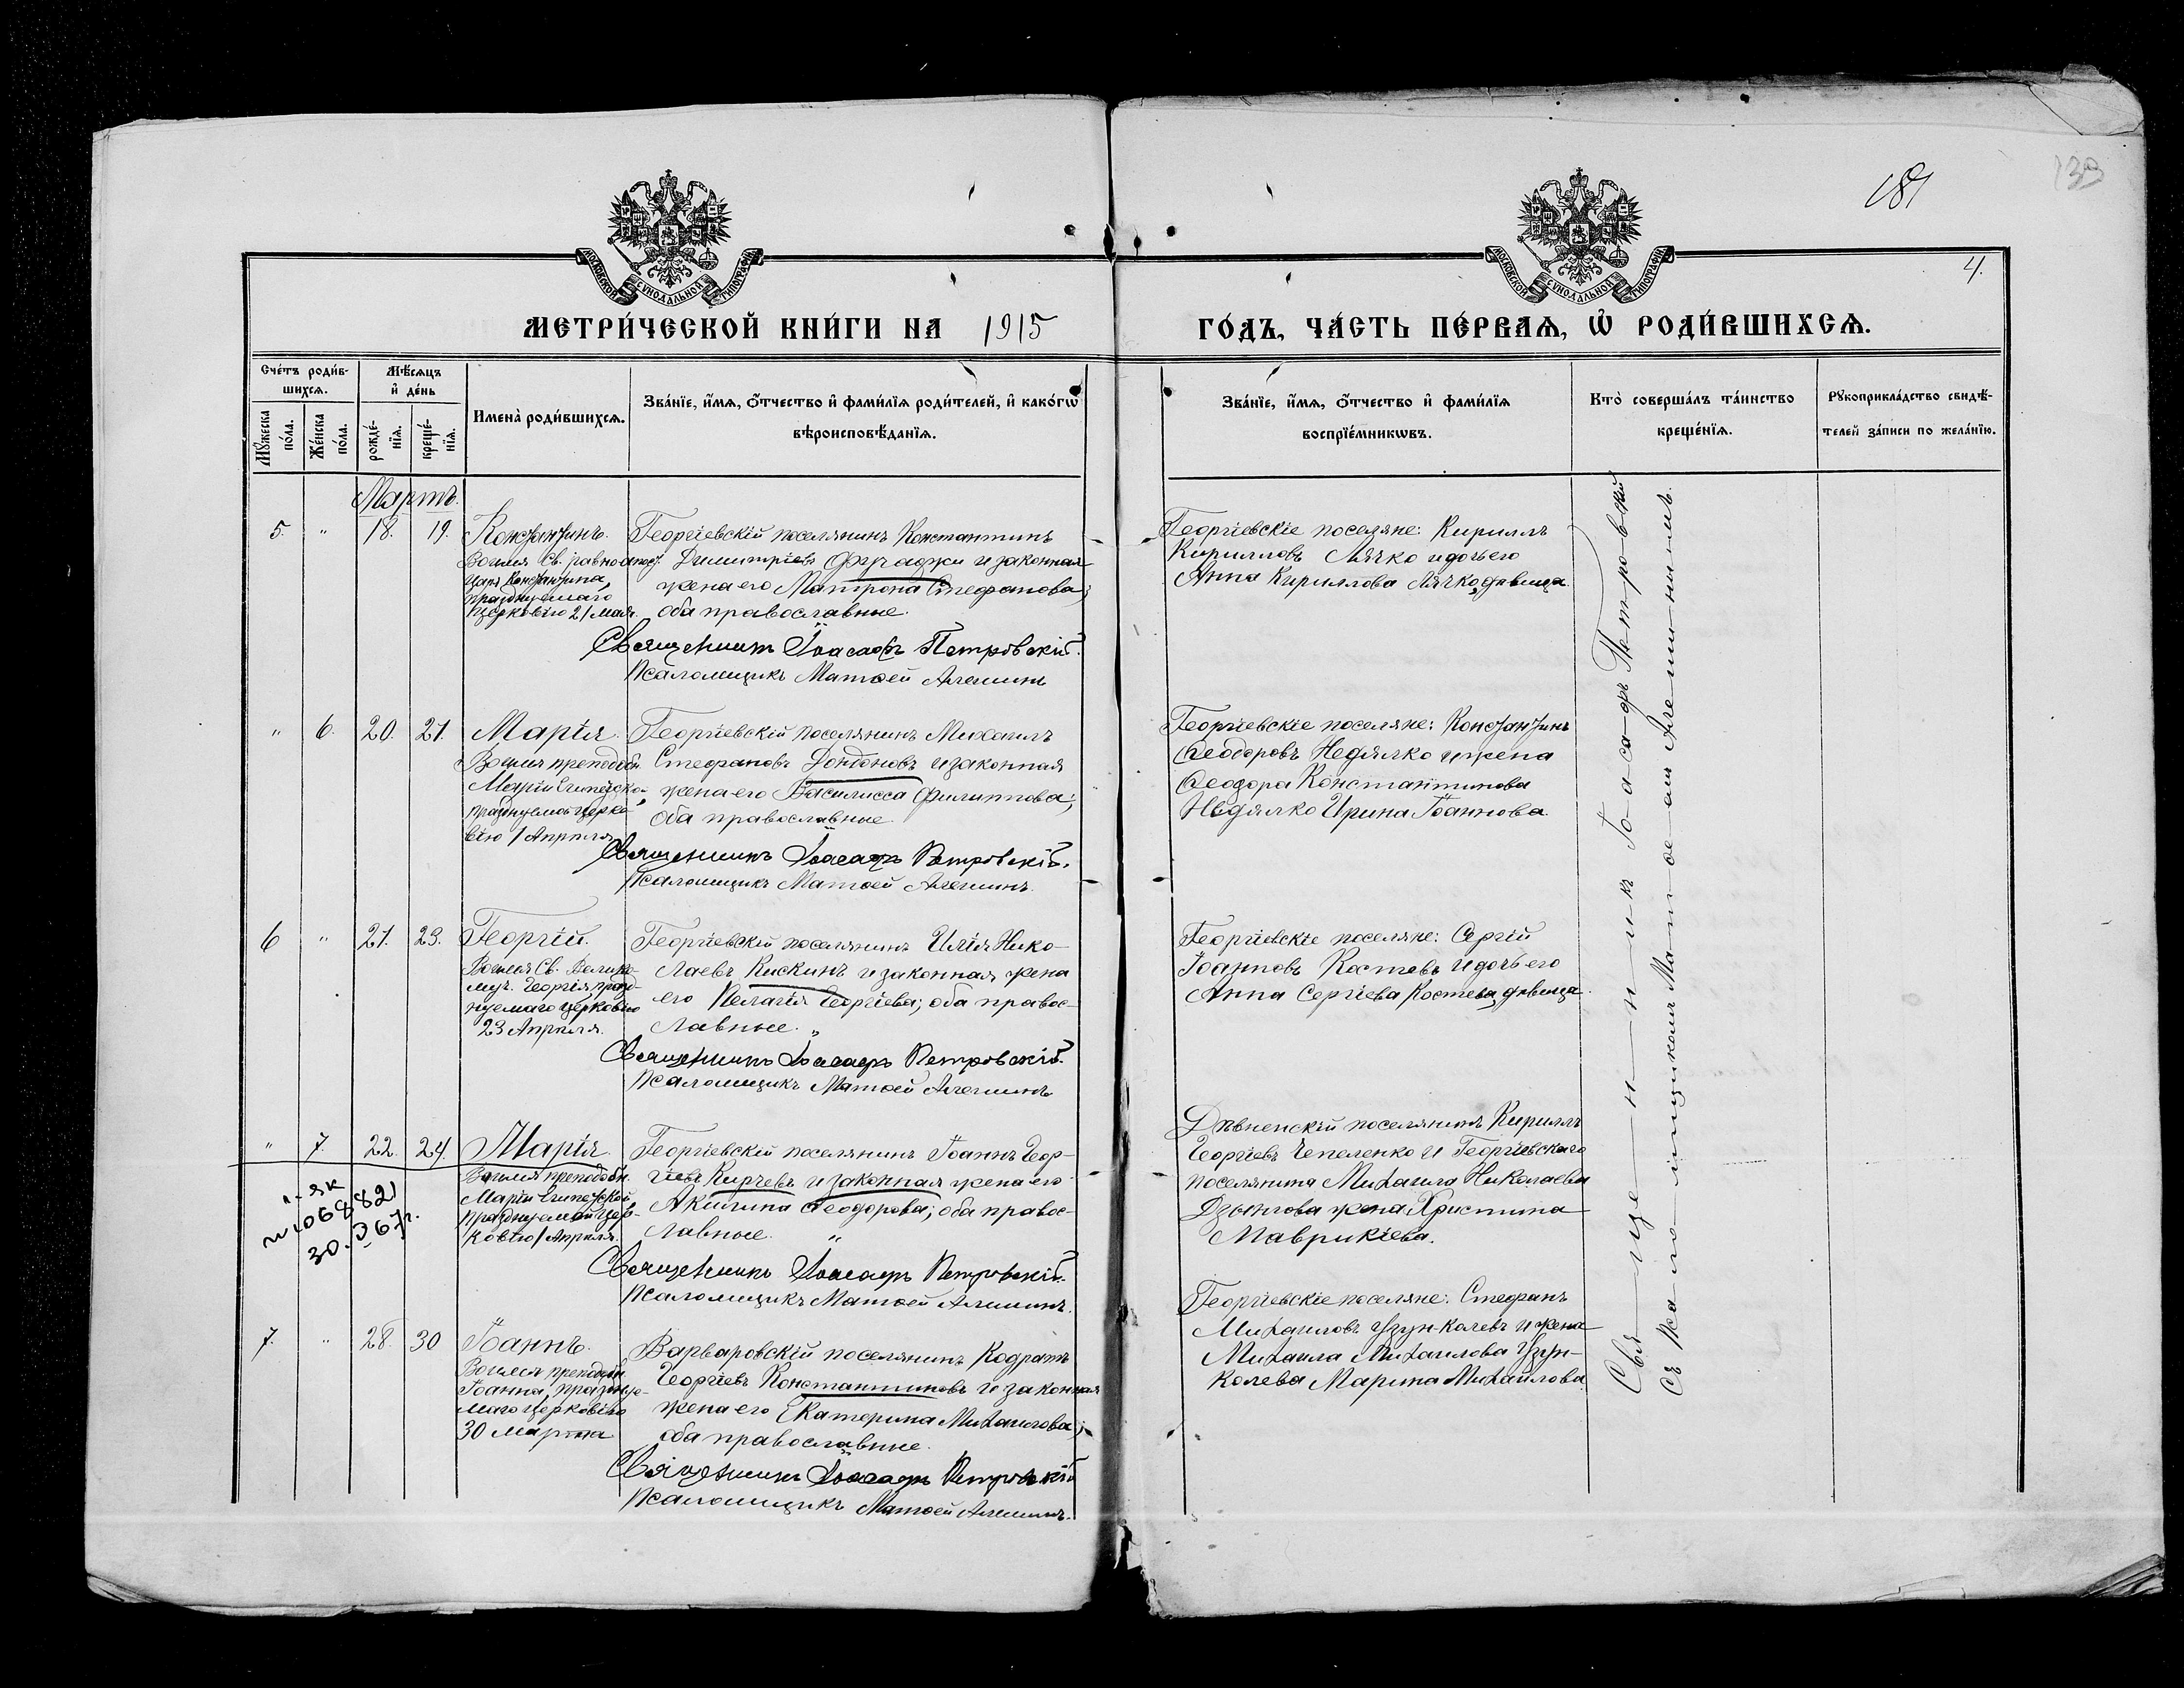 181
139
4.
МОСКОВСКОЙ СУНОДАЛЬНОЙ ТИПОГРАФІИ
МОСКОВСКОЙ СУНОДАЛЬНОЙ ТИПОГРАФІИ
МЕТРИ́ЧЕСКОЙ КНИ́ГИ НА 1915
ГО́ДЪ, ЧА́СТЬ ПЕ́РВАѦ, Ѡ҆ РОДИ́ВШИХСѦ.
Сче́тъ роди́в-
шихсѧ.
Мꙋ́жеска
по́ла.
Же́нска
по́ла.
Мѣ́сѧцъ
и҆ де́нь
рожде́-
нїѧ.
креще́-
нїѧ.
Имена̀ роди́вшихсѧ.
Зва́нїе, и҆́мѧ, ѻ҆́тчество и҆ фами́лїѧ роди́телей, и҆ како́гѡ
вѣроисповѣ́данїѧ.
Зва́нїе, и҆́мѧ, ѻ҆́тчество и҆ фами́лїѧ
воспрїе́мникѡвъ.
Кто̀ соверша́лъ та́инство
креще́нїѧ.
Рꙋкоприкла́дство свидѣ́-
телей за́писи по жела́нїю.
Мартъ.
5. " 18. 19. Константинъ.
Во имя Св. равноапос.
царя Константина,
празднуемаго
церковію 21 мая.
Георгіевскій поселянинъ Константинъ
Димитріевъ Фучаджи и законная
жена его Матрона Стефанова;
оба православные.
Священникъ Іоасафъ Петровскій.
Псаломщикъ Матѳей Алешинъ
Георгіевскіе поселяне: Кириллъ
Кирилловъ Лячко и дочь его
Анна Кириллова Лячко, дѣвица.
" 6. 20. 21. Марія.
Во имя преподобн.
Маріи Египетской,
празднуемой церко-
вію 1 Апрѣля.
Георгіевскій поселянинъ Михаилъ
Стефановъ Дондоновъ и законная
жена его Василисса Филиппова;
оба православные.
Священникъ Іоасафъ Петровскій.
Псаломщикъ Матѳей Алешинъ.
Георгіевскіе поселяне: Константинъ
Ѳеодоровъ Недялко и жена
Ѳеодора Константинова
Недялко Ирина Іоаннова.
6 " 21. 23. Георгій.
Во имя Св. Велико-
муч. Георгія, празд-
нуемаго церковію
23 Апрѣля.
Георгіевскій поселянинъ Илія Нико-
лаевъ Кискинъ и законная жена
его Пелагія Георгіева; оба правос-
лавные. "
Священникъ Іоасафъ Петровскій.
Псаломщикъ Матѳей Алешинъ
Георгіевскіе поселяне: Сергій
Іоанновъ Костевъ и дочь его
Анна Сергіева Костева, дѣвица.
" 7. 22. 24. Марія.
Во имя преподобн.
Маріи Египетской,
празднуемой цер-
ковію 1 Апрѣля.
Георгіевскій поселянинъ Іоаннъ Геор-
гіевъ Кирчевъ и законная жена его
Акилина Ѳеодорова; оба правос-
лавные. "
Священникъ Іоасафъ Петровскій.
Псаломщикъ Матѳей Алешинъ.
Дѣвненскій поселянинъ Кириллъ
Георгіевъ Чепеленко и Георгіевскаго
поселянина Михаила Николаева
Дзынгова жена Христина
Маврикіева.
7. " 28. 30 Іоаннъ.
Во имя преподобн.
Іоанна, празднуе-
маго церковію
30 марта
Варваровскій поселянинъ Кодратъ
Георгіевъ Константиновъ и законная
жена его Екатерина Михаилова;
оба православные.
Священникъ Іоасафъ Петровскій
Псаломщикъ Матѳей Алешинъ.
Георгіевскіе поселяне: Стефанъ
Михаиловъ Узун-Колевъ и жена
Михаила Михаилова Узун-
Колева Марина Михайлова.
Священникъ Іоасафъ Петровскій
съ псаломщикомъ Матѳеемъ Алешинымъ.